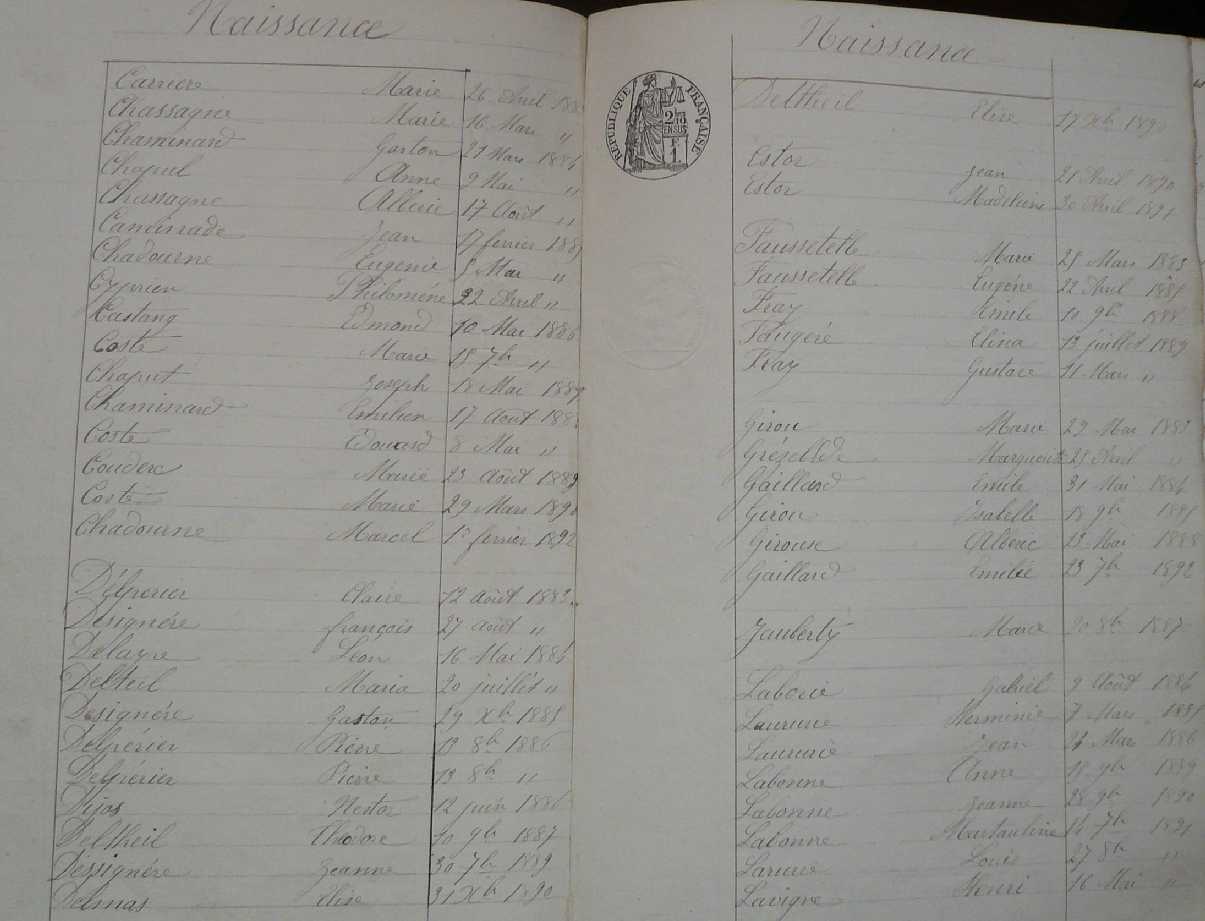 Naissance
Carriere Marie 26 Avril 188
Chassagne Marie 16 Mars "
Chaminard Gaston 23 Mars 1884
Chapul Anne 9 Mai "
Chassagne 17 Août "
Jean 17 fevrier 1885
Chadourne Eugenie 5 Mai "
Cyprien Philoméne 22 Avril "
Castang Edmond 10 Mai 1886
Coste Marie 15 7bre "
Chaput Joseph 18 Mai 1887
Chaminard Emilien 17 Août 188
Coste Edouard 8 Mai "
Couderc Marie 23 Août 1889
Coste Marie 29 Mars 1890
Chadourne Marcel 1er fevrier 1892
Délperier Claire 12 Août 1883
Désignére françois 27 Août "
Delayre Léon 16 Mai 1884
Deltheil Maria 20 juillet "
Designére Gaston 29 Xbre 1885
Delpérier Pierre 13 8bre 1886
Delpérier Pierre 13 8bre "
Dijos Nestor 12 juin 1886
Deltheil Théodore 10 9bre 1887
Dessignére Jeanne 30 7bre 1889
Delmas Elise 31 Xbre 1890
Naissance
RÉPUBLIQUE FRANÇAISE
2/10 EN SUS
F 1
Deltheil Elise 17 Xbre 1890
Estor Jean 21 Avril 1890
Estor Madeleine 30 Avril 1891
Faussetelle Marie 25 Mars 1883
Faussetelle Eugéne 22 Avril 1885
Fray Emile 10 9bre 1888
Faugeré Elina 13 juillet 1889
Fray Gustave 11 Mars "
Girou Marie 29 Mai 1883
Marguerite 25 Avril "
Gaillard Emile 31 Mai 1884
Girou Isabelle 18 9bre 1885
Girouse 13 Mai 1888
Gaillard Emilie 23 7bre 1892
Jauberty Marie 20 8bre 1887
Laborie Gabriel 9 Août 1886
Laurerie Herminie 7 Mars 1885
Laurerie Jean 23 Mars 1886
Labonne Anne 18 9bre 1889
Labonne Jeanne 28 9bre 1890
Labonne 14 7bre 1891
Larerie Louis 27 8bre "
Lavigne Henri 16 Mai "